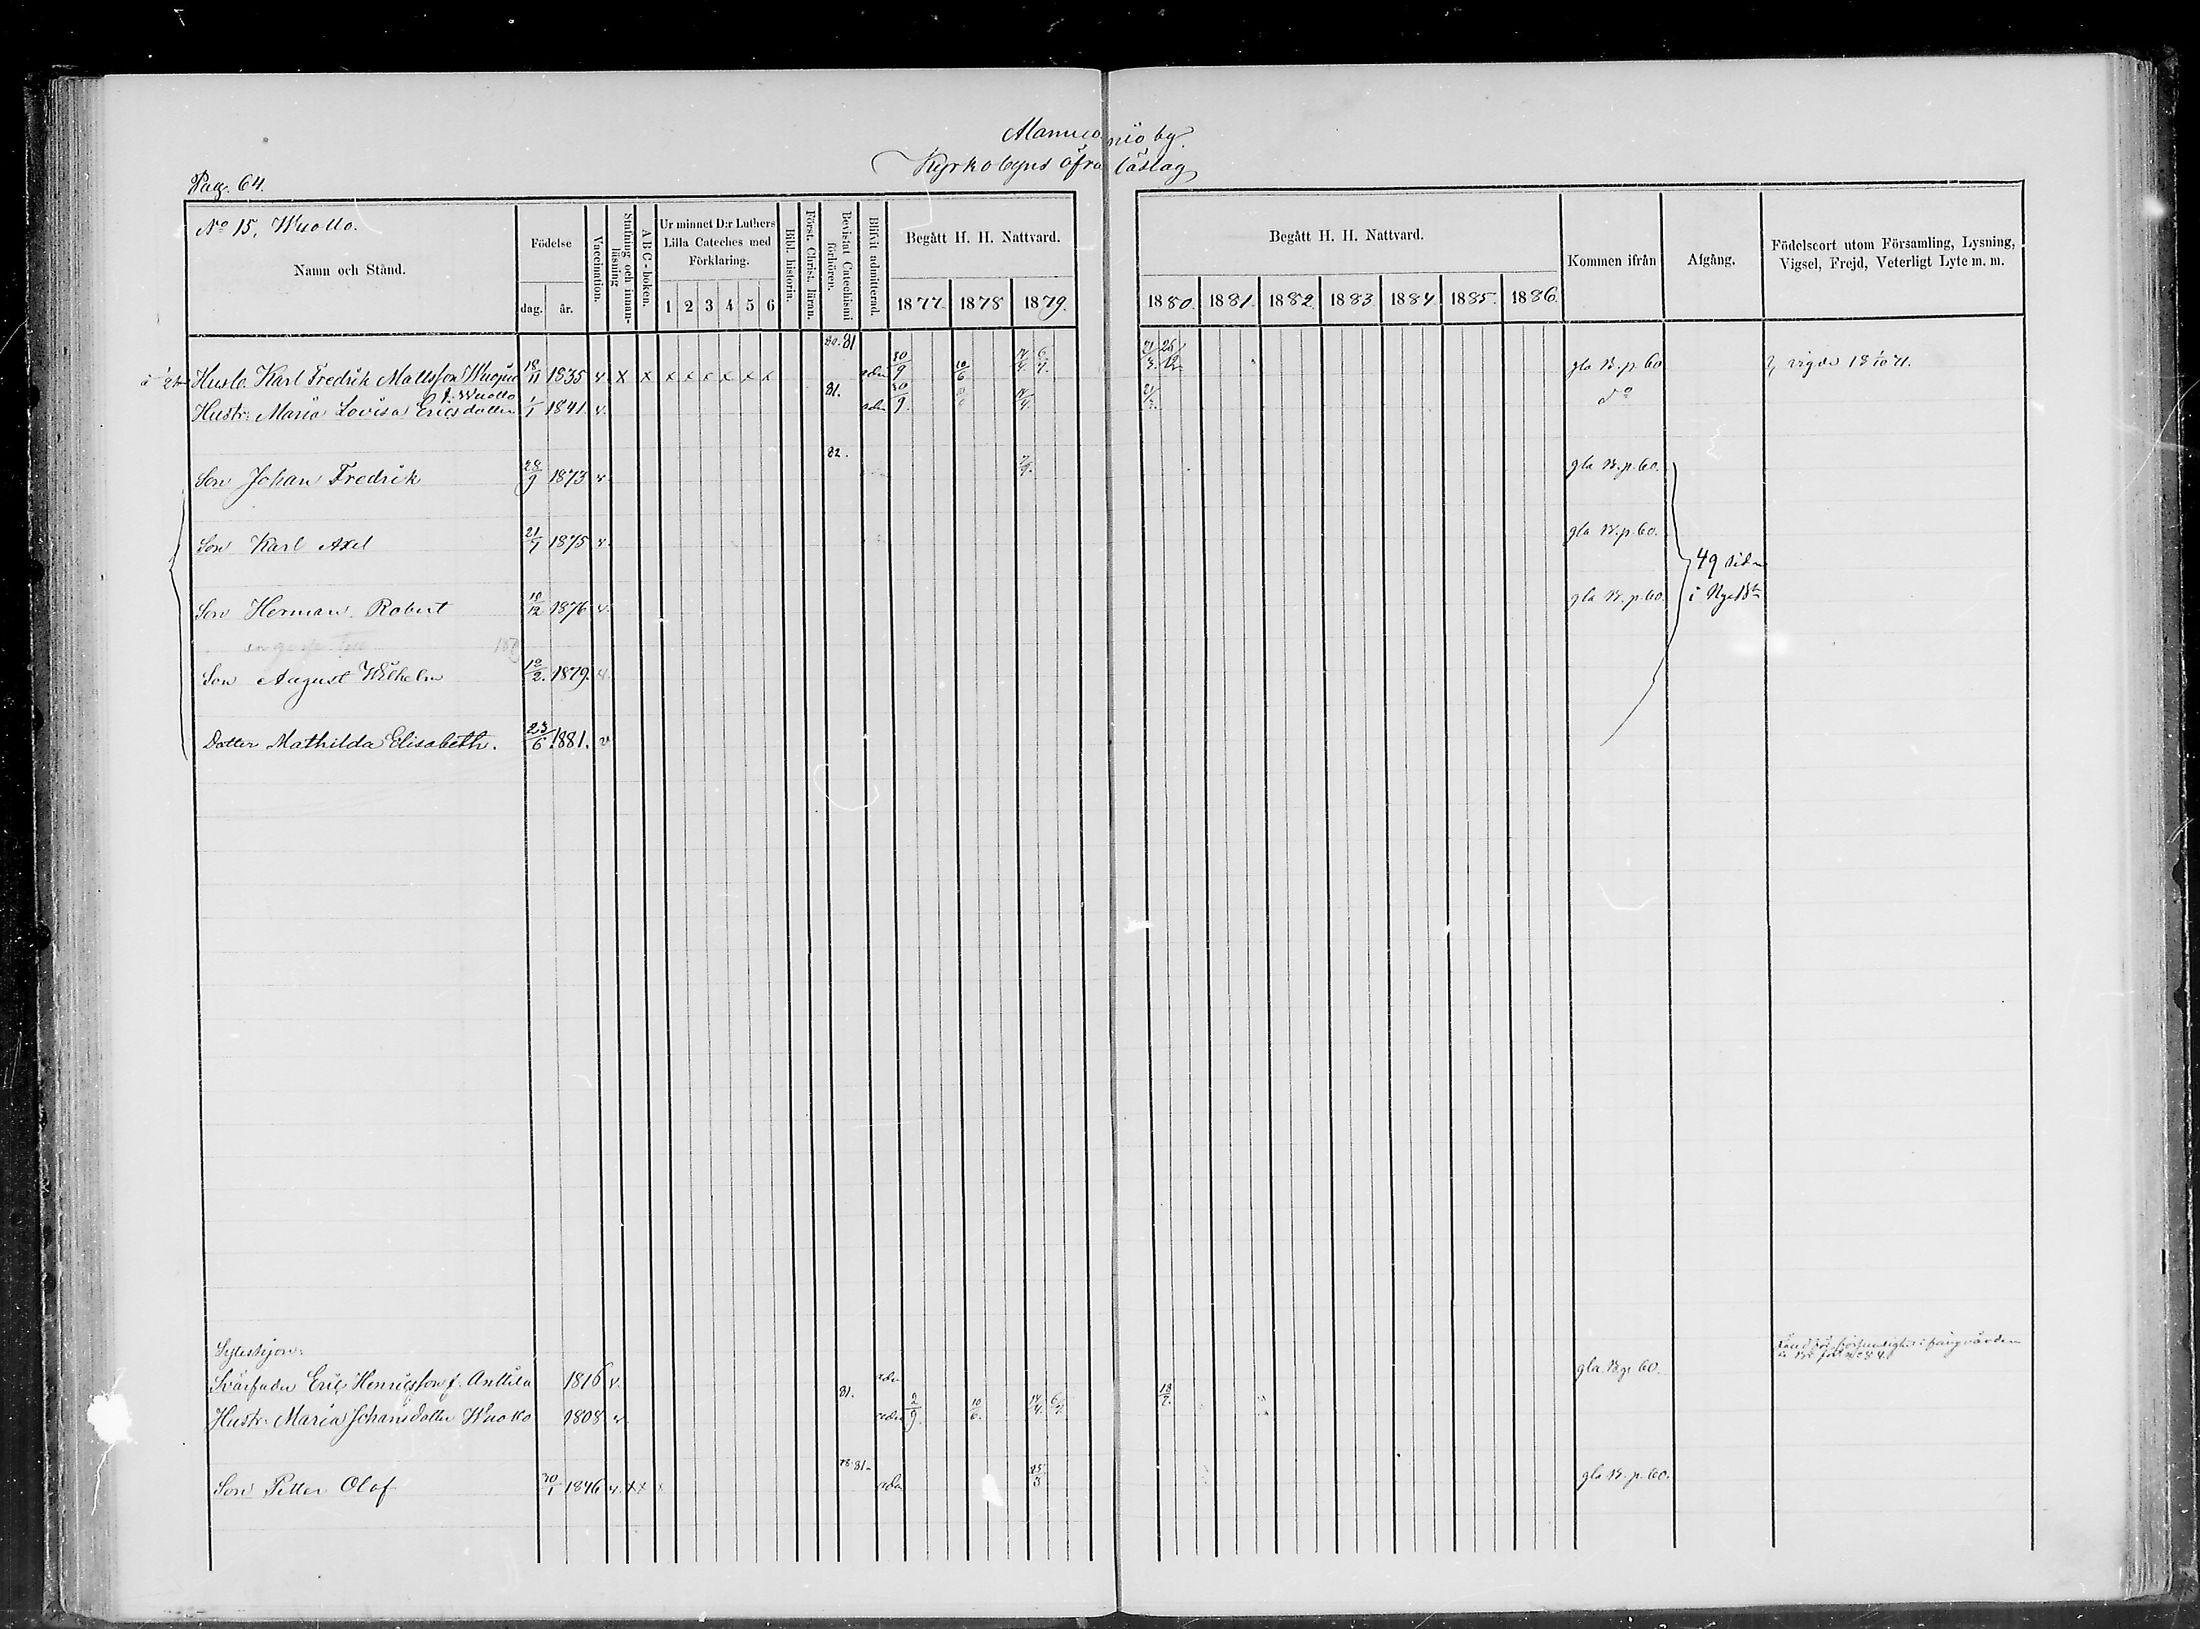 Muonionio by.
Kyrkobyns öfra läslag
Pag. 64.
No 15, Wuollo.
Namn och Stånd.
Födelse
dag.
år.
Vaccination.
Stafning och innanläsning
A B C-boken.
Ur minnet D:r Luthers Lilla Cateches med Förklaring.
1 2 3 4 5 6
Bibl. historia.
Först. Christ. läran.
Bevistat Catechismi förhören.
Blifvit admitterad.
Begått H. H. Nattvard.
1877. 1878 1879.
Begått H. H. Nattvard.
1880. 1881. 1882. 1883. 1884. 1885. 1886.
Kommen ifrån
Afgång.
Födelseort utom Församling, Lysning, Vigsel, Frejd, Veterligt Lyte m. m.
80. 81
Husb. Karl Fredrik Mattsson 18/11 1835 v. x x x x x x x x adm 30/9 10/6 14/4 6/7. gla B. p. 60 vigde 18 /10 71.
f. Wuollo
Hustr: Maria Lovisa Ericsdotter 1/1 1841. v. 81. adm 30/9. 14/4. do
Son Johan Fredrik 28/9 1873 v. 82. gla B. p. 60.
Son Karl Axel 21/9 1875 v. gla B. p. 60.
49 sidan
Son Herman Robert 10/12 1876 v. gla B. p. 60. i Nya Bn
Son August Wilhelm 12/2. 1879. v.
Dotter Mathilda Elisabeth. 23/6 1881. v
Syteshjon:
Svärfader Eric Henricsson f. Anttila 1816 v. adm gla B. p. 60.
Hustr: Maria Johansdotter Wuollo 1808 v 81. adm 2/9. 10/6. 14/4. 6/7. 18/7.
Son Petter Olof 30/1 1846 v. x x x 78. 81. adm 23/3 gla B. p. 60.